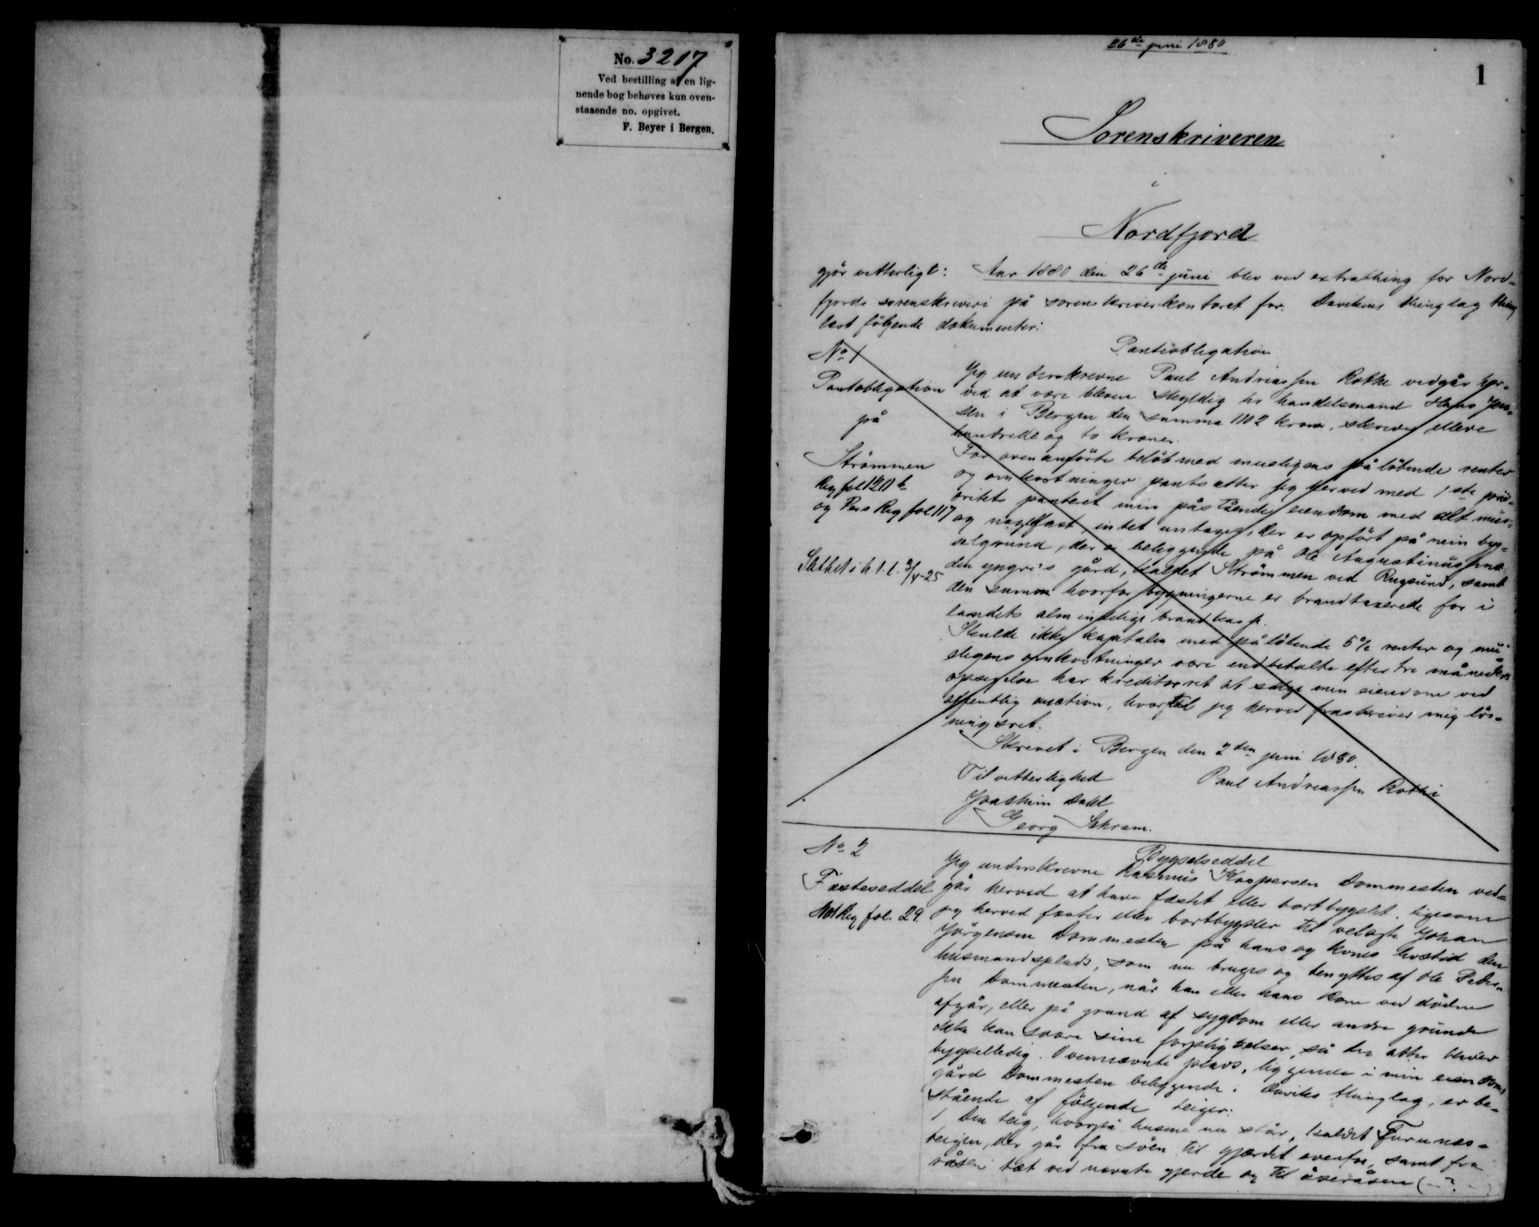 No. 3217
Ved bestilling af en lig-
nende bog behøves kun oven-
staaende no. opgivet.
F. Beyer i Bergen.
26de juni 1880
1
Sorenskriveren
i
Nordfjord
gjör vitterligt: Aar 1880 den 26de juni blev ved extrathing for Nord-
fjords sorenskriveri på sorenskriverkontoret for Davikens thinglag thing
læst følgende dokumenter:
No 1
Pantobligation
på
Strömmen
Reg fol 120 b
og Pers Reg fol 117
Slettet i h. t. l. 3/4-25
Pantobligation
Jeg underskrevne Paul Andreassen Rothe vedgår her-
ved at være bleven skyldig hr handelsmand Hans Jen-
sen i Bergen den summa 1102 kroner, skriver elleve
hundrede og to kroner.
For ovenanførte beløb med muligens påløbende renter
og omkostninger pantsætter jeg herved med 1ste prio-
oritets panteret min påstående eiendom med alt mur-
og naglfast, intet undtaget, der er opført på min byg-
selgrund, der er beliggende på Ole Augustinussens
den yngres gård, kaldet Strømmen ved Rugsund, samt
den summa hvorfor bygningerne er brandtaxerede for i
landets almindelige brandkasse.
Skulde ikke kapitalen med påløbende 5% renter og mu-
ligens omkostninger være indbetalte efter tre måneders
opsigelse har kreditor ret at sælge min eiendom ved
offentlig auction, hvortil jeg herved fraskriver mig løs-
ningsret.
Skrevet i Bergen den 2den juni 1880.
Til vitterlighed Paul Andreassen Rothe
Joachim Dahl
Georg Schram.
No 2
Fæsteseddel
Mtl Reg fol. 29.
Bygselseddel
Jeg underskrevne Rasmus Kaspersen Dommesten ved-
går herved at have fæstet eller bortbygslet, ligesom
jeg herved fæster eller bortbygsler til velagte Johan
Jørgensen Dommesten på hans og kones livstid den
husmandsplads, som nu bruges og benyttes af Ole Peder-
sen Dommesten, når han eller hans kone ved døden
afgår, eller på grund af sygdom eller andre grunde
ikke kan svare sine forpligtelser, så den atter bliver
bygselledig. Ovennævnte plads, liggende i min eiendoms
gård Dommesten beliggende i Davikes thinglag, er be-
stående af følgende teiger:
1 Den teig, hvorpå husene nu står, kaldet Furunes-
teigen, der går fra søen til gjerdet ovenfor, samt fra
råsen tæt ved nævnte gjerde og til åseråsen (—?